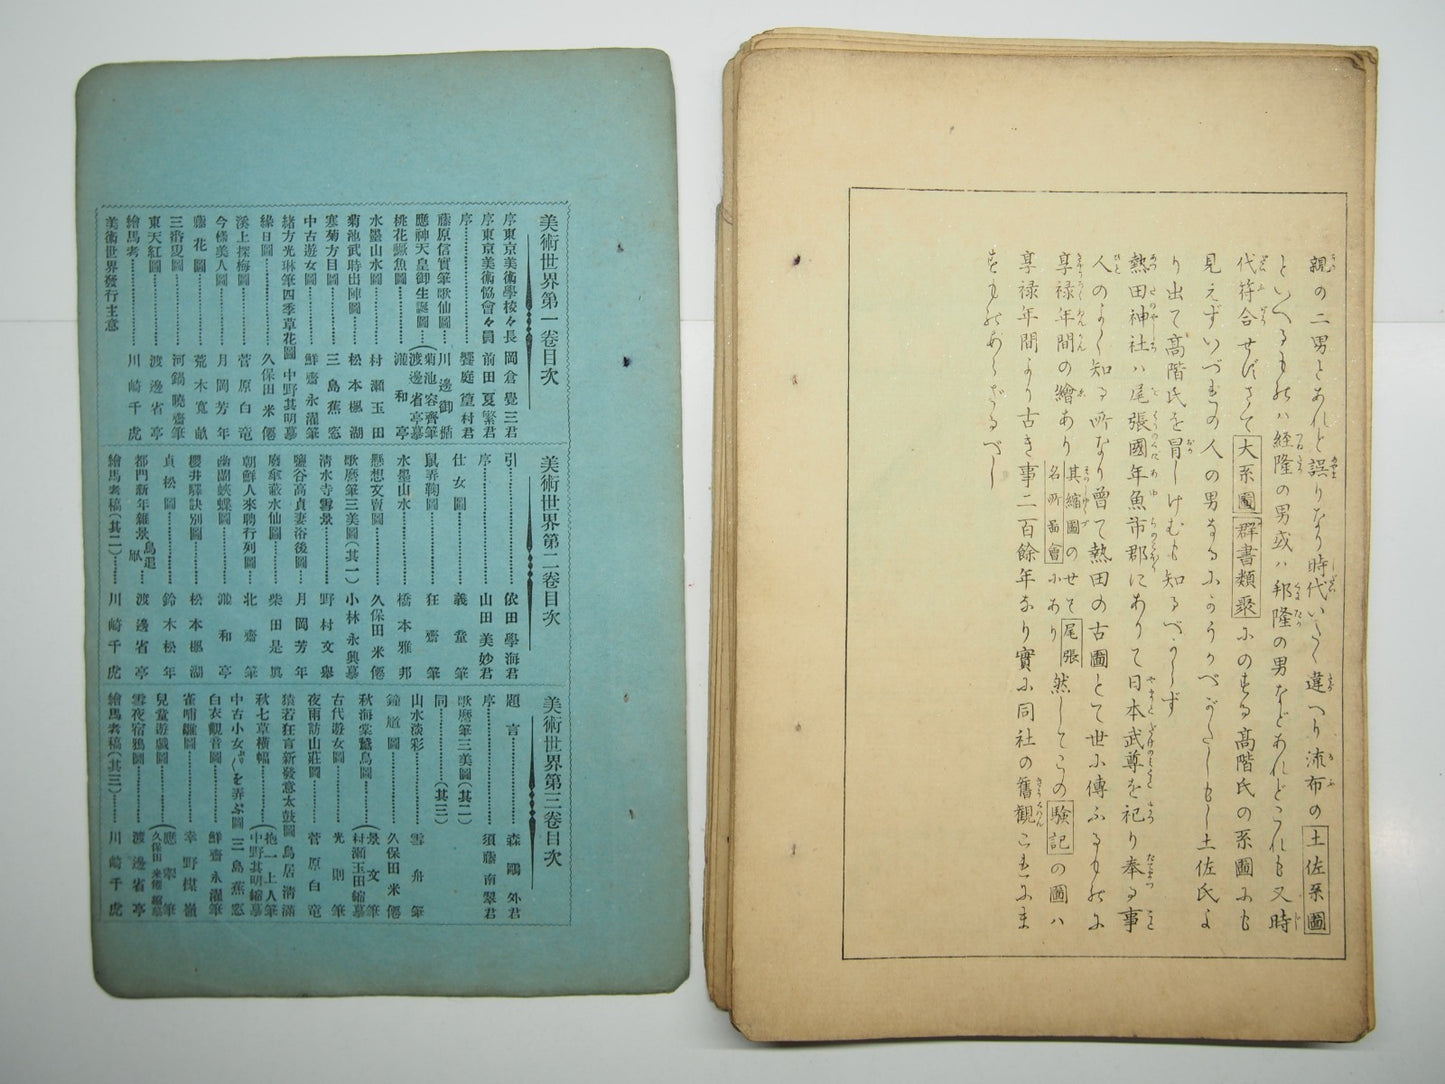 親の二男とあれど誤りなり時代いたく違へり流布の土佐系圖
といへるものハ経隆の男或ハ邦隆の男などあれどこれも又時
代符合せずさて大系圖群書類聚にのする高階氏の系圖にも
見えずいづれの人の男なるにかうかべがたしもし土佐氏よ
り出て高階氏を冒しけむも知るべからず
熱田神社ハ尾張國年魚市郡にありて日本武尊を祀り奉る事
人のよく知る所なり曾て熱田の古圖とて世に傳ふるものに
享禄年間の繪あり其縮圖のせて尾張名所圖會にあり然してこの驗記の圖ハ
享禄年間より古き事二百餘年なり實に同社の舊觀こゝにま
すものあらざるべし
美術世界第一卷目次
序東京美術學校々長 岡倉覺三君
序東京美術協會々員 前田夏繁君
序 饗庭篁村君
藤原信實筆歌仙圖 川邊御楯
應神天皇御生誕圖 (菊池容齊筆 渡邊省亭摹
桃花鱖魚圖 瀧和亭
水墨山水圖 村瀬玉田
菊池武時出陣圖 松本楓湖
寒菊方目圖 三島蕉窓
中古遊女圖 鮮齋永濯筆
緒方光琳筆四季草花圖 中野其明摹
緣日圖 久保田米僊
溪上探梅圖 菅原白竜
今樣美人圖 月岡芳年
藤花圖 荒木寬畝
三番叟圖 河鍋曉齋筆
東天紅圖 渡邊省亭
繪馬考 川崎千虎
美術世界發行主意
美術世界第二卷目次
引 依田學海君
序 山田美妙君
仕女圖 義董筆
鼠弄鞠圖 狂齋筆
水墨山水 橋本雅邦
懸想文賣圖 久保田米僊
歌麿筆三美圖(其一) 小林永興摹
清水寺雪景 野村文擧
鹽谷高貞妻浴後圖 月岡芳年
磨傘蔽水仙圖 柴田是眞
朝鮮人來聘行列圖 北齋筆
幽蘭蛺蝶圖 瀧和亭
櫻井驛訣別圖 松本楓湖
貞松圖 鈴木松年
都門新年雜景 鳥追 凧 渡邊省亭
繪馬考稿(其二) 川崎千虎
美術世界第三卷目次
題言 森鷗外君
序 須藤南翠君
歌麿筆三美圖(其二)
同 (其三)
山水淡彩 雪舟筆
鐘馗圖 久保田米僊
秋海棠鷺鳥圖 (景文筆 村瀬玉田縮摹
古代遊女圖 光則筆
夜雨訪山莊圖 菅原白竜
猿若狂言新發意太鼓圖 鳥居清滿
秋七草橫幅 (抱一上人筆 中野其明縮摹
中古小女ふり〱を弄ぶ圖 三島蕉窓
白衣觀音圖 鮮齋永濯筆
雀哺雛圖 幸野楳嶺
兒童遊戲圖 (應擧筆 久保田米僊縮摹
雪夜宿鴉圖 渡邊省亭
繪馬考稿(其三) 川崎千虎